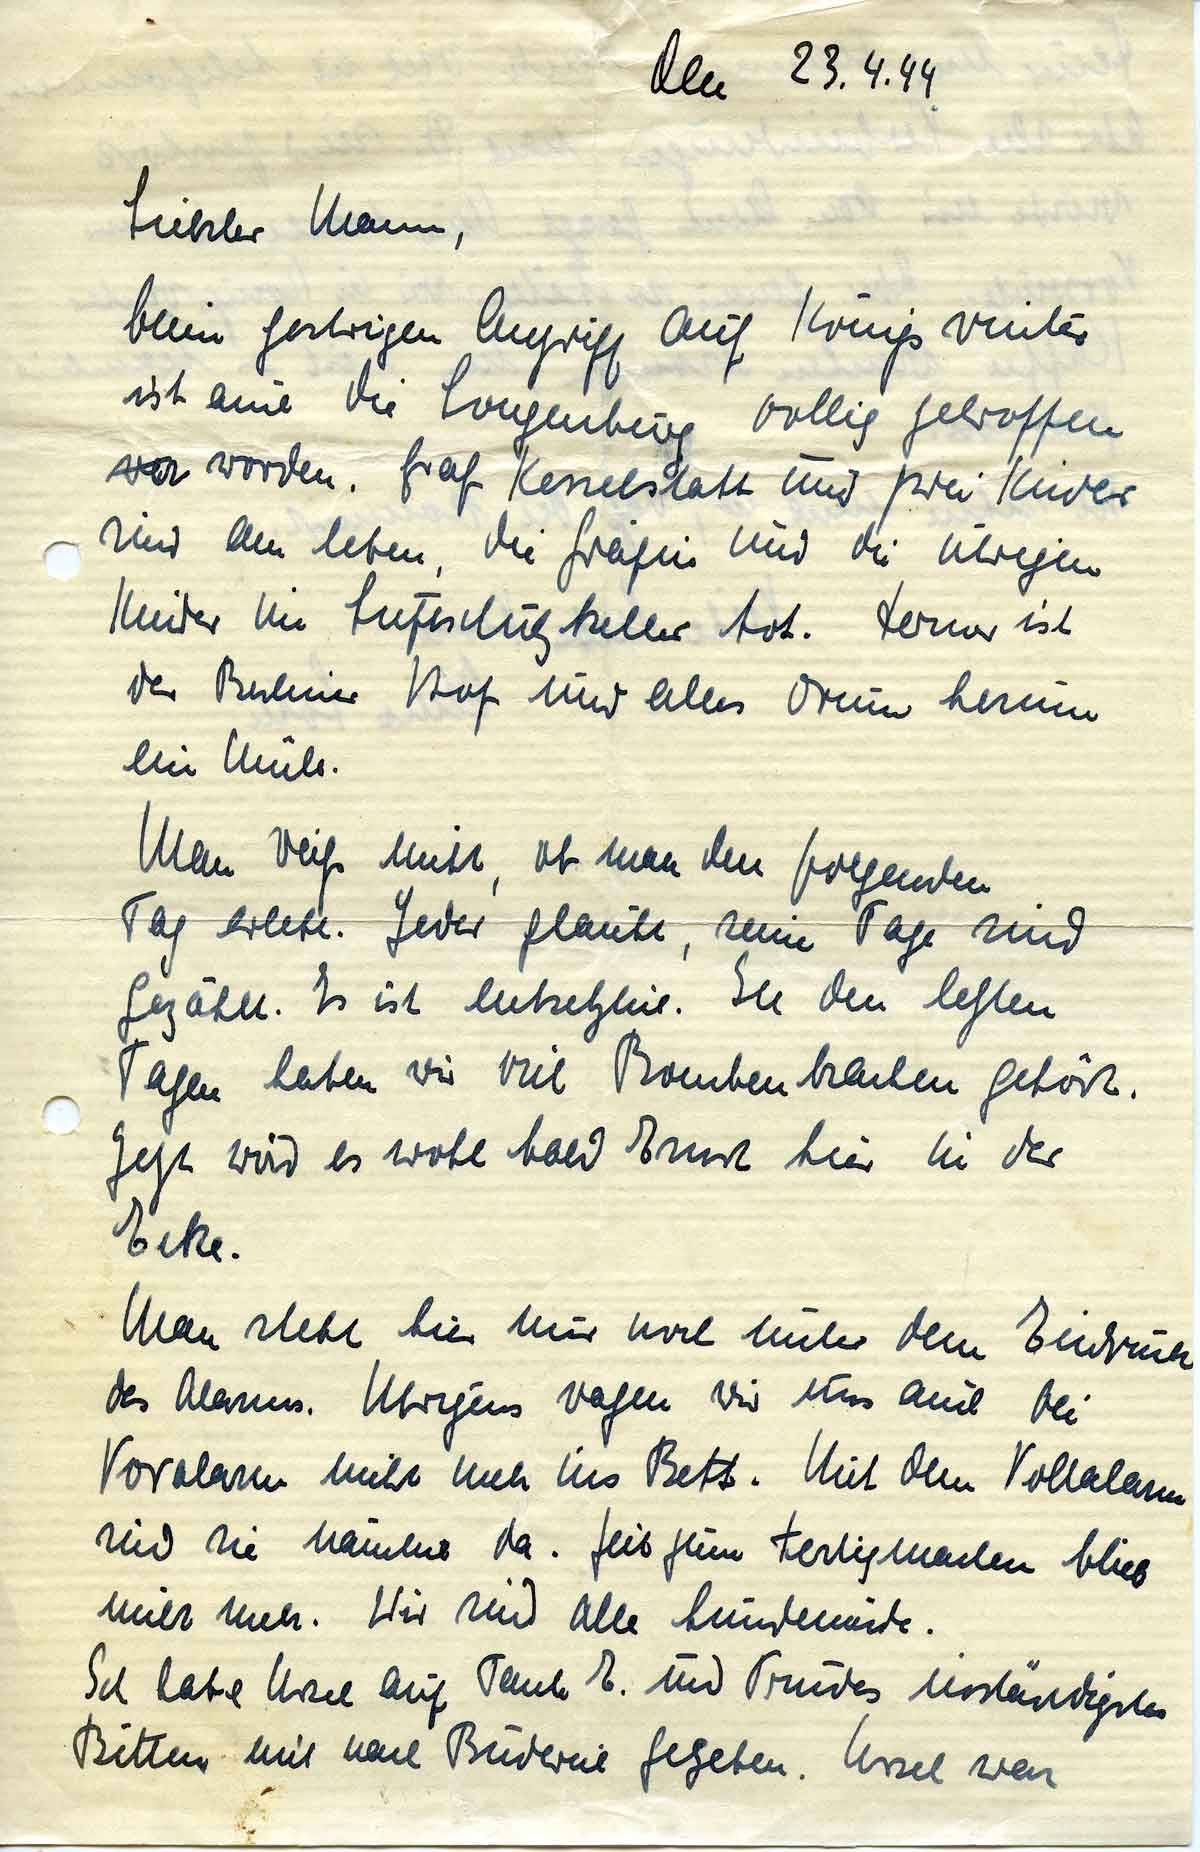 Den 23.4.44
Liebster Mann,
beim gestrigen Angriff auf Königswinter
ist auch die Longenburg völlig getroffen
worden. Graf Kesselstatt und zwei Kinder
sind am leben, die Gräfin und die übrigen
Kinder im Luftschutzkeller tot. Ferner ist
der Berliner Hof und alles drum herum
ein
Man weiß nicht, ob man den folgenden
Tag erlebt. Jeder glaubt, seine Tage sind
gezählt. Es ist entsetzlich. In den letzten
Tagen haben wir viel Bomben krachen gehört.
Jetzt wird es wohl bald Ernst hier in der
Ecke.
Man steht hier nur noch unter dem Eindruck
des Alarms. Übrigens wagen wir uns auch bei
Voralarm nicht mehr ins Bett. Mit dem Vollalarm
sind sie nämlich da. Zeit zum Fertigmachen blieb
nicht mehr. Wir sind alle hundemüde.
Ich habe Ursel auf Tante E. und Trudes inständigstes
Bitten mit nach Büderich gegeben. Ursel war